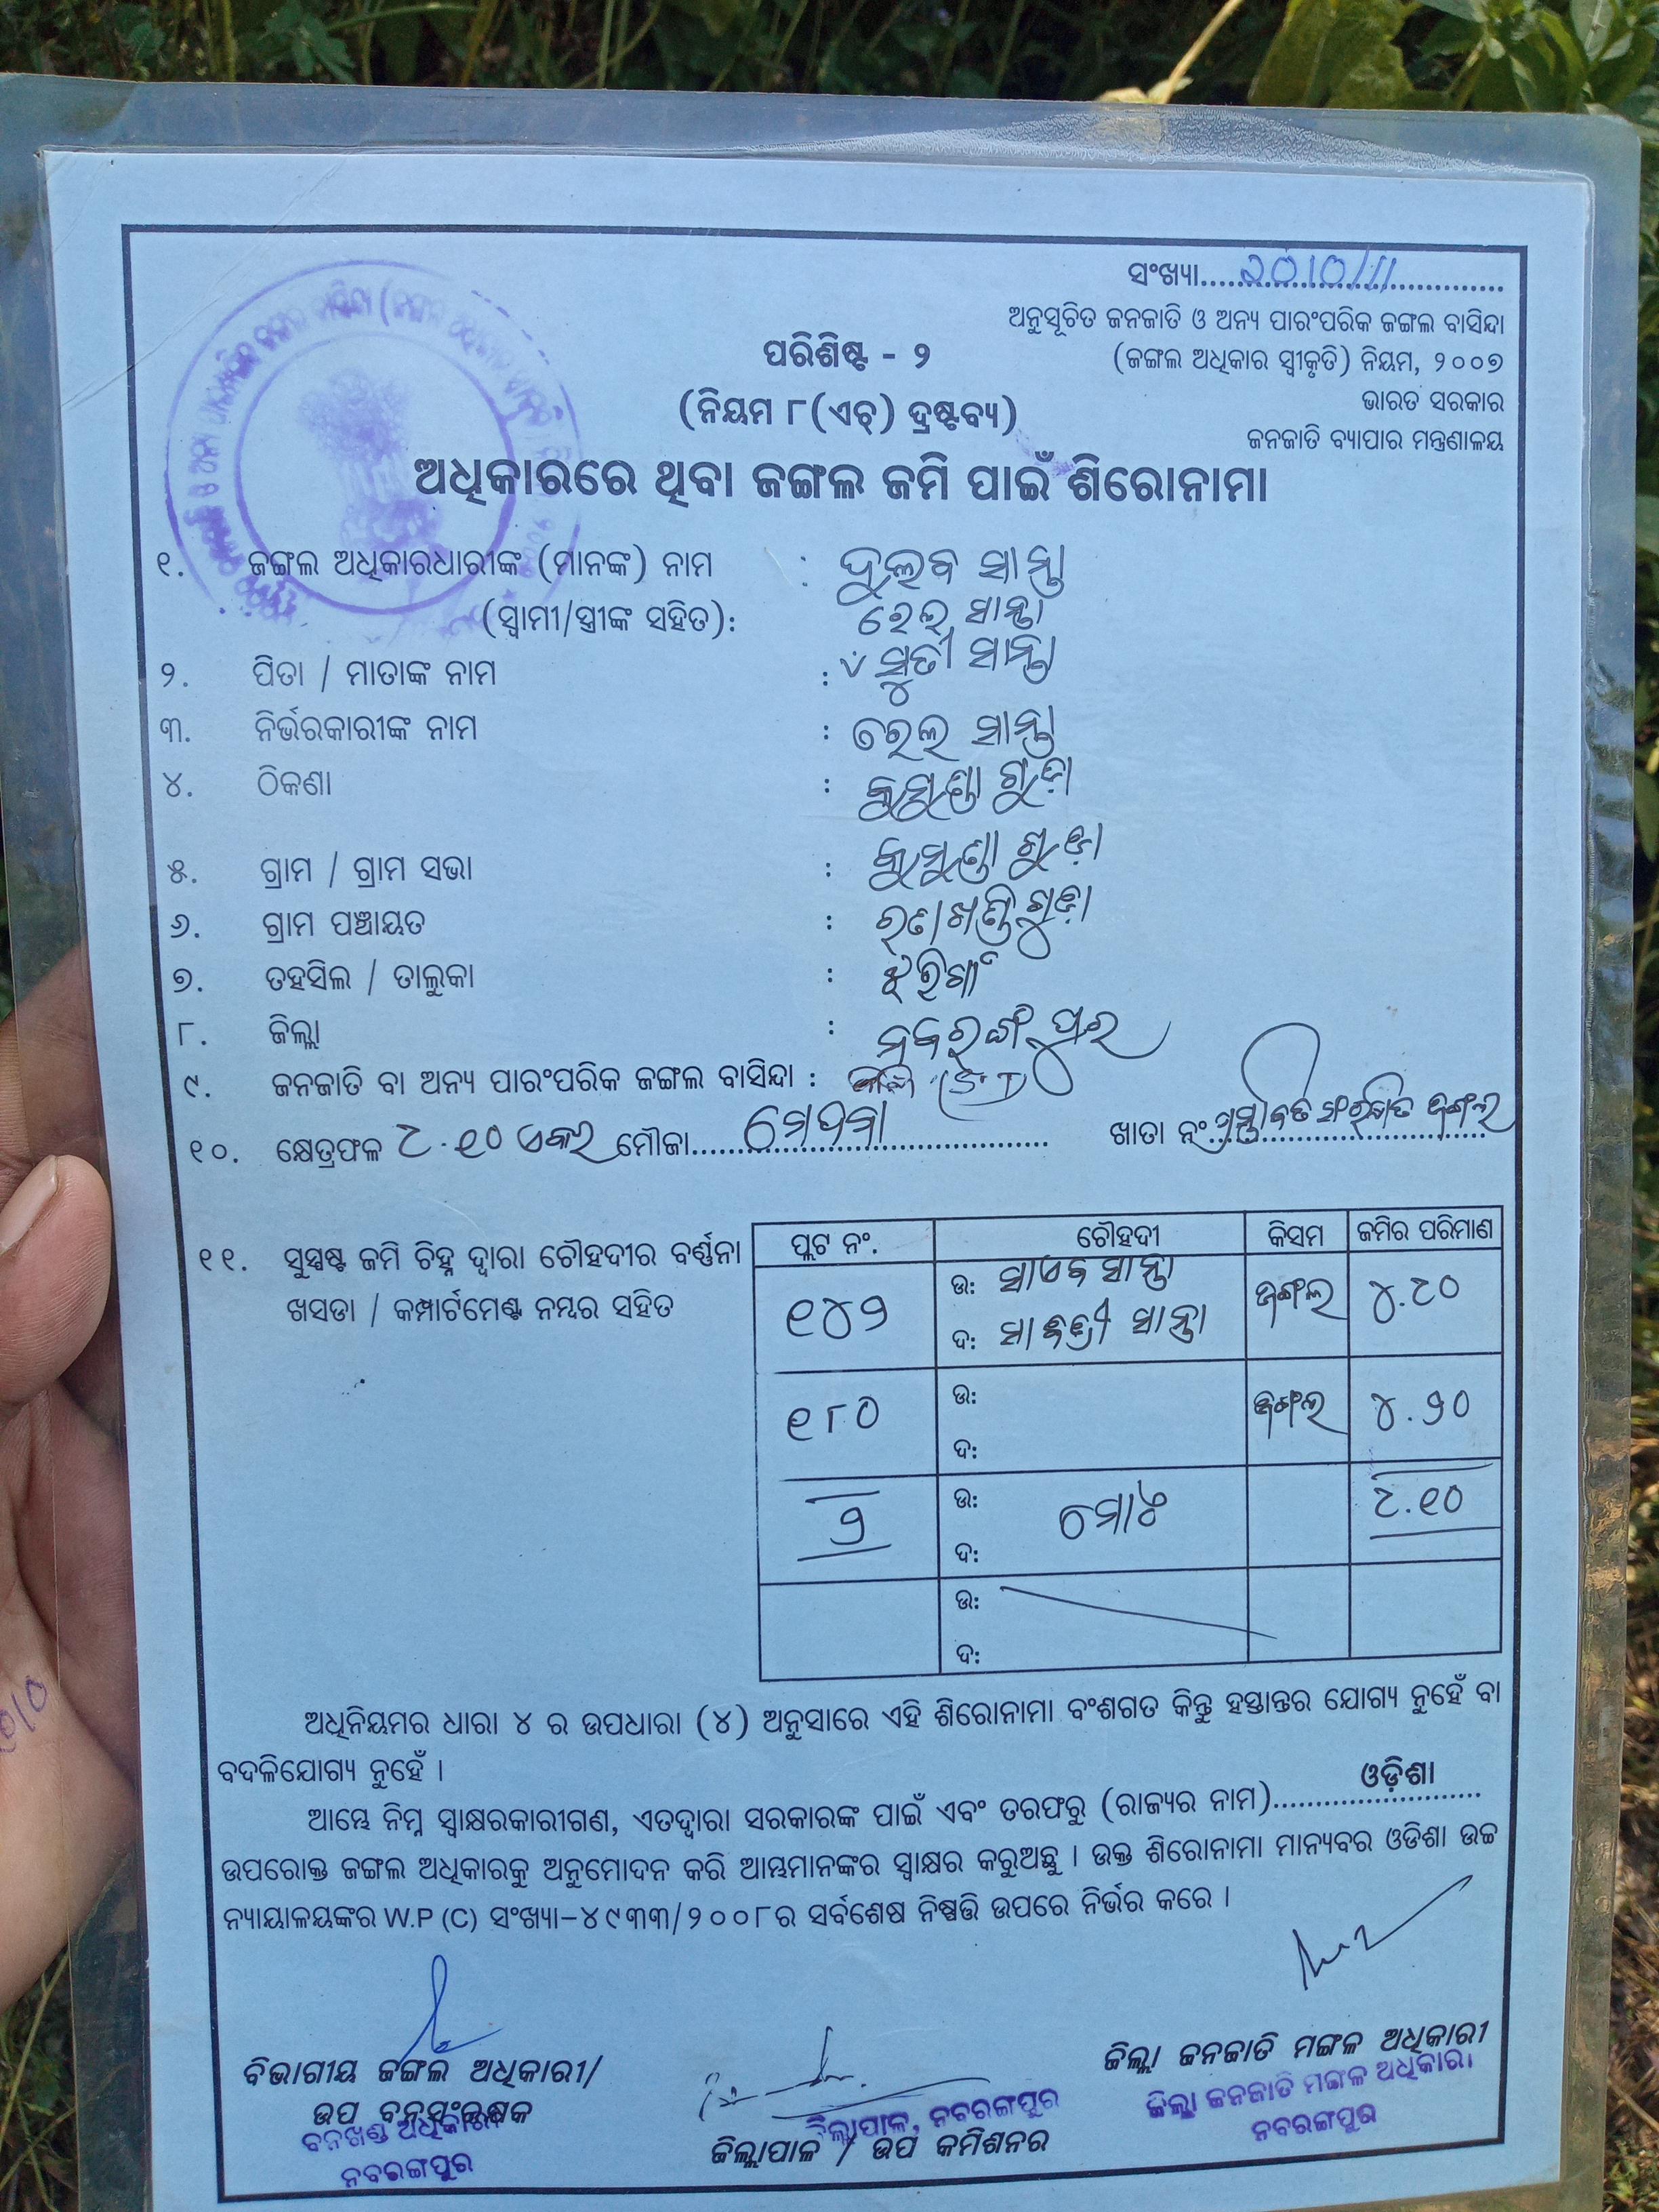 ସଂଖ୍ୟା....୨୦୧୦/11....
ଅନୁସୂଚିତ ଜନଜାତି ଓ ଅନ୍ୟ ପାରଂପରିକ ଜଙ୍ଗଲ ବାସିନ୍ଦା
(ଜଙ୍ଗଲ ଅଧିକାର ସ୍ୱୀକୃତି) ନିୟମ, ୨୦୦୭
ଭାରତ ସରକାର
ଜନଜାତି ବ୍ୟାପାର ମନ୍ତ୍ରଣାଳୟ
ପରିଶିଷ୍ଟ - ୨
(ନିୟମ ୮(ଏଚ୍) ଦ୍ରଷ୍ଟବ୍ୟ)
ଅଧିକାରରେ ଥିବା ଜଙ୍ଗଲ ଜମି ପାଇଁ ଶିରୋନାମା
୧. ଜଙ୍ଗଲ ଅଧିକାରଧାରୀଙ୍କ (ମାନଙ୍କ) ନାମ : ଦୁଲବ ସାନ୍ତା
(ସ୍ୱାମୀ/ସ୍ତ୍ରୀଙ୍କ ସହିତ): ସାନ୍ତା
୨. ପିତା / ମାତାଙ୍କ ନାମ : ସାନ୍ତା
୩. ନିର୍ଭରକାରୀଙ୍କ ନାମ : ସାନ୍ତା
୪. ଠିକଣା : କୁସୁଣ୍ଡା ଗୁଡ଼ା
୫. ଗ୍ରାମ / ଗ୍ରାମ ସଭା : କୁସୁଣ୍ଡା ଗୁଡ଼ା
୬. ଗ୍ରାମ ପଞ୍ଚାୟତ :
୭. ତହସିଲ / ତାଲୁକା : ଝରିଗାଁ
୮. ଜିଲ୍ଲା : ନବରଙ୍ଗପୁର
୯. ଜନଜାତି ବା ଅନ୍ୟ ପାରଂପରିକ ଜଙ୍ଗଲ ବାସିନ୍ଦା : (ST)
୧୦. କ୍ଷେତ୍ରଫଳ ୯.୧୦ ଏକର ମୌଜା.... ଖାତା ନଂ.ପ୍ରସ୍ତାବିତ ସଂରକ୍ଷିତ ଜଙ୍ଗଲ
୧୧. ସୁସ୍ପଷ୍ଟ ଜମି ଚିହ୍ନ ଦ୍ୱାରା ଚୌହଦୀର ବର୍ଣ୍ଣନା
ଖସଡା / କମ୍ପାର୍ଟମେଣ୍ଟ ନମ୍ବର ସହିତ
ପ୍ଲଟ ନଂ. ଚୌହଦୀ କିସମ ଜମିର ପରିମାଣ
୧୪୨ ଉ: ସାନ୍ତା ଜଙ୍ଗଲ ୪.୯୦
ଦ: ସାନ୍ତା
୧୮୦ ଉ: ଜଙ୍ଗଲ ୪.୨୦
ଦ:
୨ ଉ: ମୋଟ ୯.୧୦
ଦ:
ଉ:
ଦ:
ଅଧିନିୟମର ଧାରା ୪ ର ଉପଧାରା (୪) ଅନୁସାରେ ଏହି ଶିରୋନାମା ବଂଶଗତ କିନ୍ତୁ ହସ୍ତାନ୍ତର ଯୋଗ୍ୟ ନୁହେଁ ବା
ବଦଳିଯୋଗ୍ୟ ନୁହେଁ ।
ଆମ୍ଭେ ନିମ୍ନ ସ୍ୱାକ୍ଷରକାରୀଗଣ, ଏତଦ୍ୱାରା ସରକାରଙ୍କ ପାଇଁ ଏବଂ ତରଫରୁ (ରାଜ୍ୟର ନାମ)....ଓଡ଼ିଶା....
ଉପରୋକ୍ତ ଜଙ୍ଗଲ ଅଧିକାରକୁ ଅନୁମୋଦନ କରି ଆମ୍ଭମାନଙ୍କର ସ୍ୱାକ୍ଷର କରୁଅଛୁ । ଉକ୍ତ ଶିରୋନାମା ମାନ୍ୟବର ଓଡିଶା ଉଚ୍ଚ
ନ୍ୟାୟାଳୟଙ୍କର W.P (C) ସଂଖ୍ୟା-୪୯୩୩/୨୦୦୮ର ସର୍ବଶେଷ ନିଷ୍ପତ୍ତି ଉପରେ ନିର୍ଭର କରେ ।
ବିଭାଗୀୟ ଜଙ୍ଗଲ ଅଧିକାରୀ/
ଉପ ବନସଂରକ୍ଷକ
ବନଖଣ୍ଡ ଅଧିକାରୀ
ନବରଙ୍ଗପୁର
ଜିଲ୍ଲାପାଳ, ନବରଙ୍ଗପୁର
ଜିଲ୍ଲାପାଳ / ଉପ କମିଶନର
ଜିଲ୍ଲା ଜନଜାତି ମଙ୍ଗଳ ଅଧିକାରୀ
ଜିଲ୍ଲା ଜନଜାତି ମଙ୍ଗଳ ଅଧିକାରୀ
ନବରଙ୍ଗପୁର